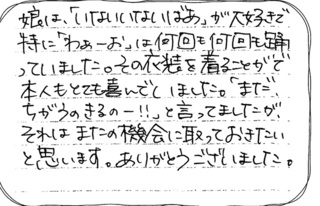 娘は、「いないいないばあ」が大好きで
特に「わぁーお」は何回も何回も踊
っていました。その衣装を着ることがで
本人もとても喜んでくしました。「まだ、
ちがうのきるのー!!」と言ってましたが、
それはまたの機会に取っておきたい
と思います。ありがとうございました。